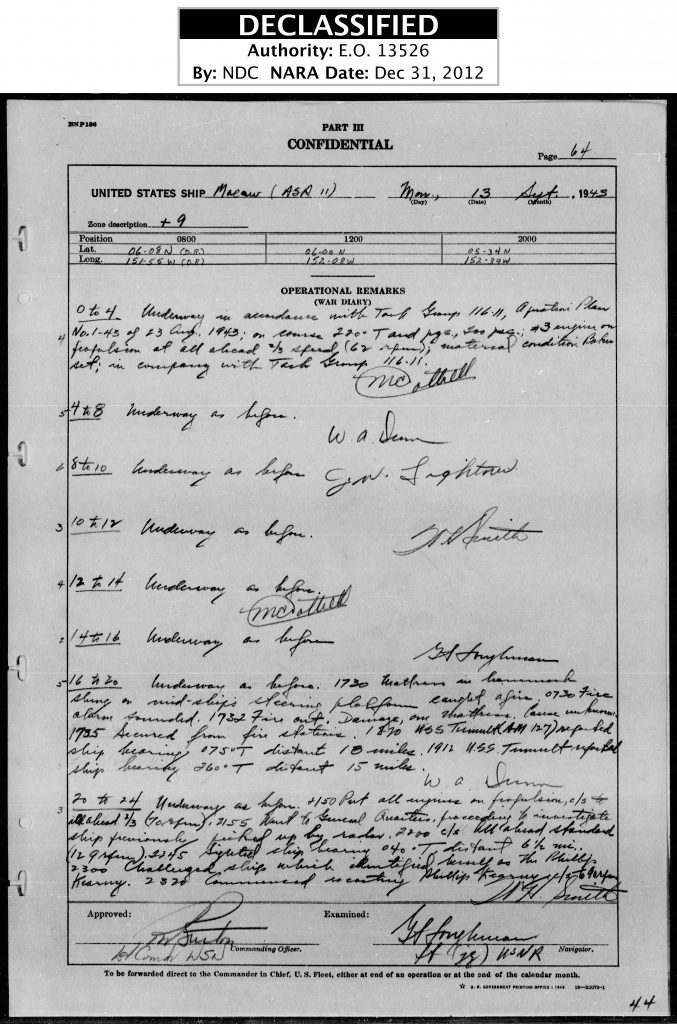 DECLASSIFIED
Authority: E.O. 13526
By: NDC NARA Date: Dec 31, 2012
BNP186
PART III
CONFIDENTIAL
Page 64
UNITED STATES SHIP Macaw (ASR 11) Mon, 13 Sept. , 1943
(Day) (Date) (Month)
Zone description + 9
Position 0800 1200 2000
Lat. 06-08N (D.R.) 06-00N 05-34N
Long. 151-55W (D.R) 152-08W 152-39W
OPERATIONAL REMARKS
(WAR DIARY)
0 to 4 Underway in accordance with Task Group 116.11, Plan
4 No. 1-43 of 23 Aug. 1943; on course 220° T and pgc., psc.; #3 engine on
propulsion at all ahead 2/3 speed (62 rpm); material condition Baker
set; in company with Task Group 116.11.
5 4 to 8 Underway as before.
W A Dunn
6 8 to 10 Underway as before
3 10 to 12 Underway as before.
W H Smith
4 12 to 14 Underway as before.
2 14 to 16 Underway as before
5 16 to 20 Underway as before. 1730 Mattress in hammock
slung on mid-ships steering platform caught afire. 0730 Fire
alarm sounded. 1732 Fire out. Damage, one mattress. Cause unknown.
1735 Secured from fire stations. USS Tumult (AM 127) reported
ship bearing 075°T distant 18 miles. 1912 USS. Tumult reported
ship bearing 260° T distant 15 miles.
W. A. Dunn
3 20 to 24 Underway as before. 2150 Put all engines on propulsion, c/s to
all ahead 2/3 (70 rpm). 2155 Went to General Quarters, proceeding to investigate
ship previously picked up by radar. 2200 c/s All ahead standard
(129 rpm). 2245 Sighted ship bearing 040° T, distant 6 1/2 mi.
2300 Challenged ship which identified herself as the Phillip
Kearny. 2320 Commenced escorting Phillip Kearny,
W. H. Smith
Approved: Examined:
Lt Comdr USN Commanding Officer. Lt (jg) USNR Navigator.
To be forwarded direct to the Commander in Chief, U. S. Fleet, either at end of an operation or at the end of the calendar month.
☆ U. S. GOVERNMENT PRINTING OFFICE : 1943
44